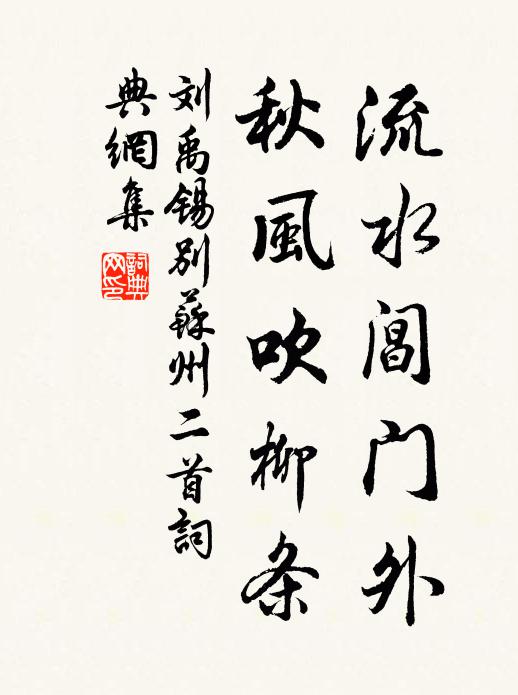 流水閶门外
秋風吹柳条
刘禹锡别蘇州二首詞
典網集
詞典
网印